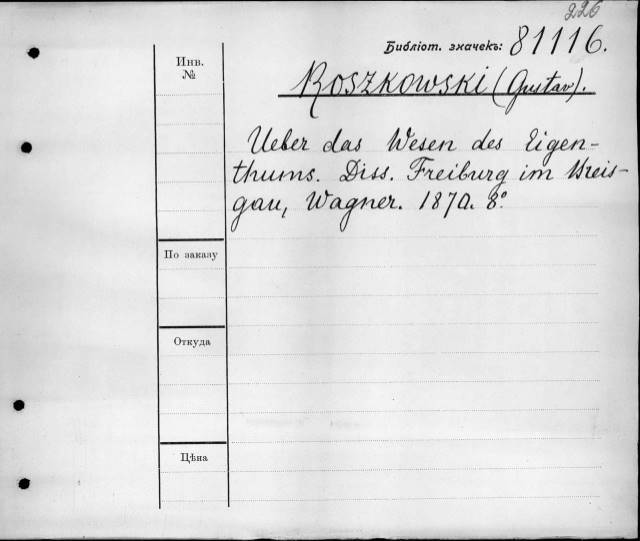 226
Библіот. значекъ: 81116.
Инв.
№
Roszkowski (Gustav).
Ueber das Wesen des Eigen-
thums. Diss. Freiburg im Breis-
gau, Wagner. 1870. 8°
По заказу
Откуда
Цѣна